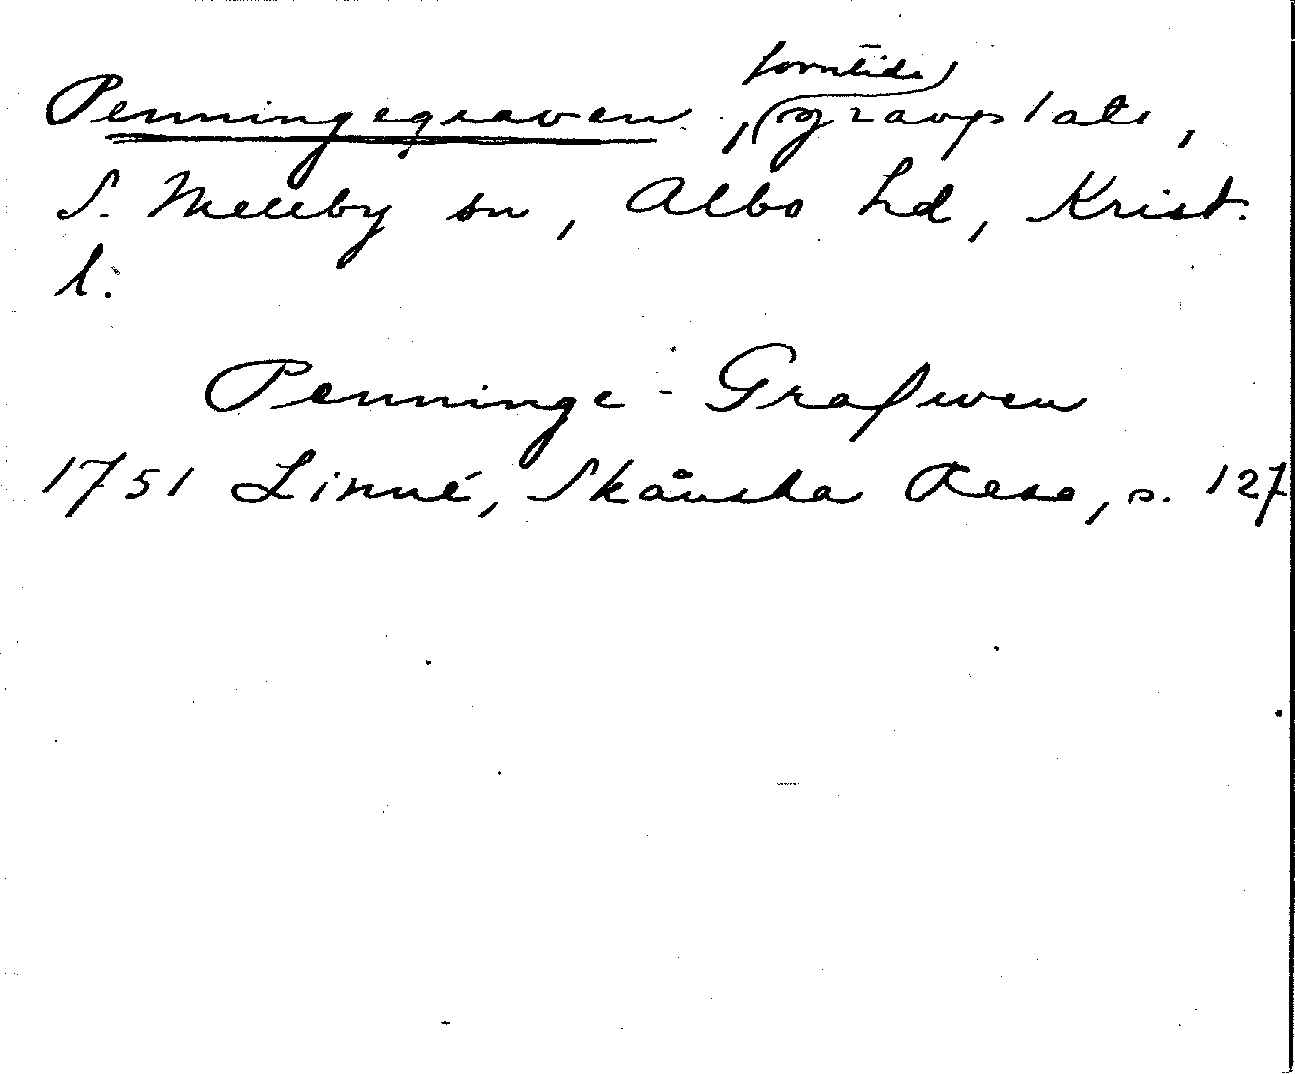 Penningegraven, forntida gravplats,
S. Mellby sn, Albo hd, Krist.
l.
Penninge-Grafwen
1751 Linné, Skånska Resa, s. 127